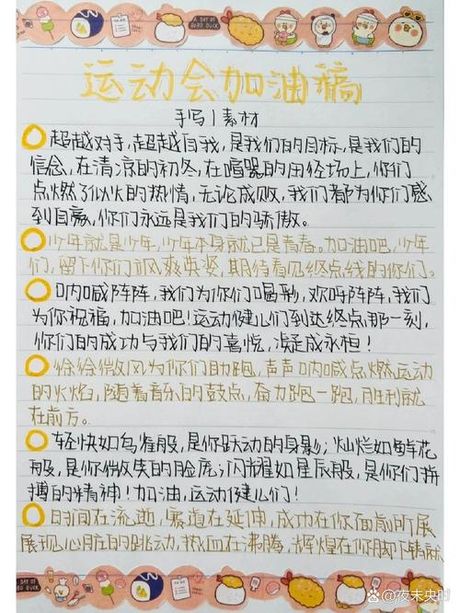 运动会加油稿
手写|素材
超越对手,超越自我,是我们的目标,是我们的
信念,在清凉的初冬,在喧嚣的田径场上,你们
点燃了似火的热情,无论成败,我们都为你们感
到自豪,你们永远是我们的骄傲。
少年就是少年,少年本身就已是青春。加油吧,少年
们,留下你们飒爽英姿,期待看见终点线的你们。
呐喊阵阵,我们为你们喝彩,欢呼阵阵,我们
为你祝福,加油吧!运动健儿们到达终点那一刻,
你们的成功与我们的喜悦,凝成永恒!
徐徐微风为你们助跑,声声呐喊点燃运动
的火焰,随着音乐的鼓点,奋力跑一跑,胜利就
在前方。
轻快如鸟雀般,是你跃动的身影;灿烂如鲜花
般,是你微笑的脸庞;闪耀如星辰般,是你们拼
搏的精神!加油,运动健儿们!
时间在流逝,赛道在延伸,成功在你面前所展
展现,心脏的跳动,热血在沸腾,辉煌在你脚下铸就
夜未央时